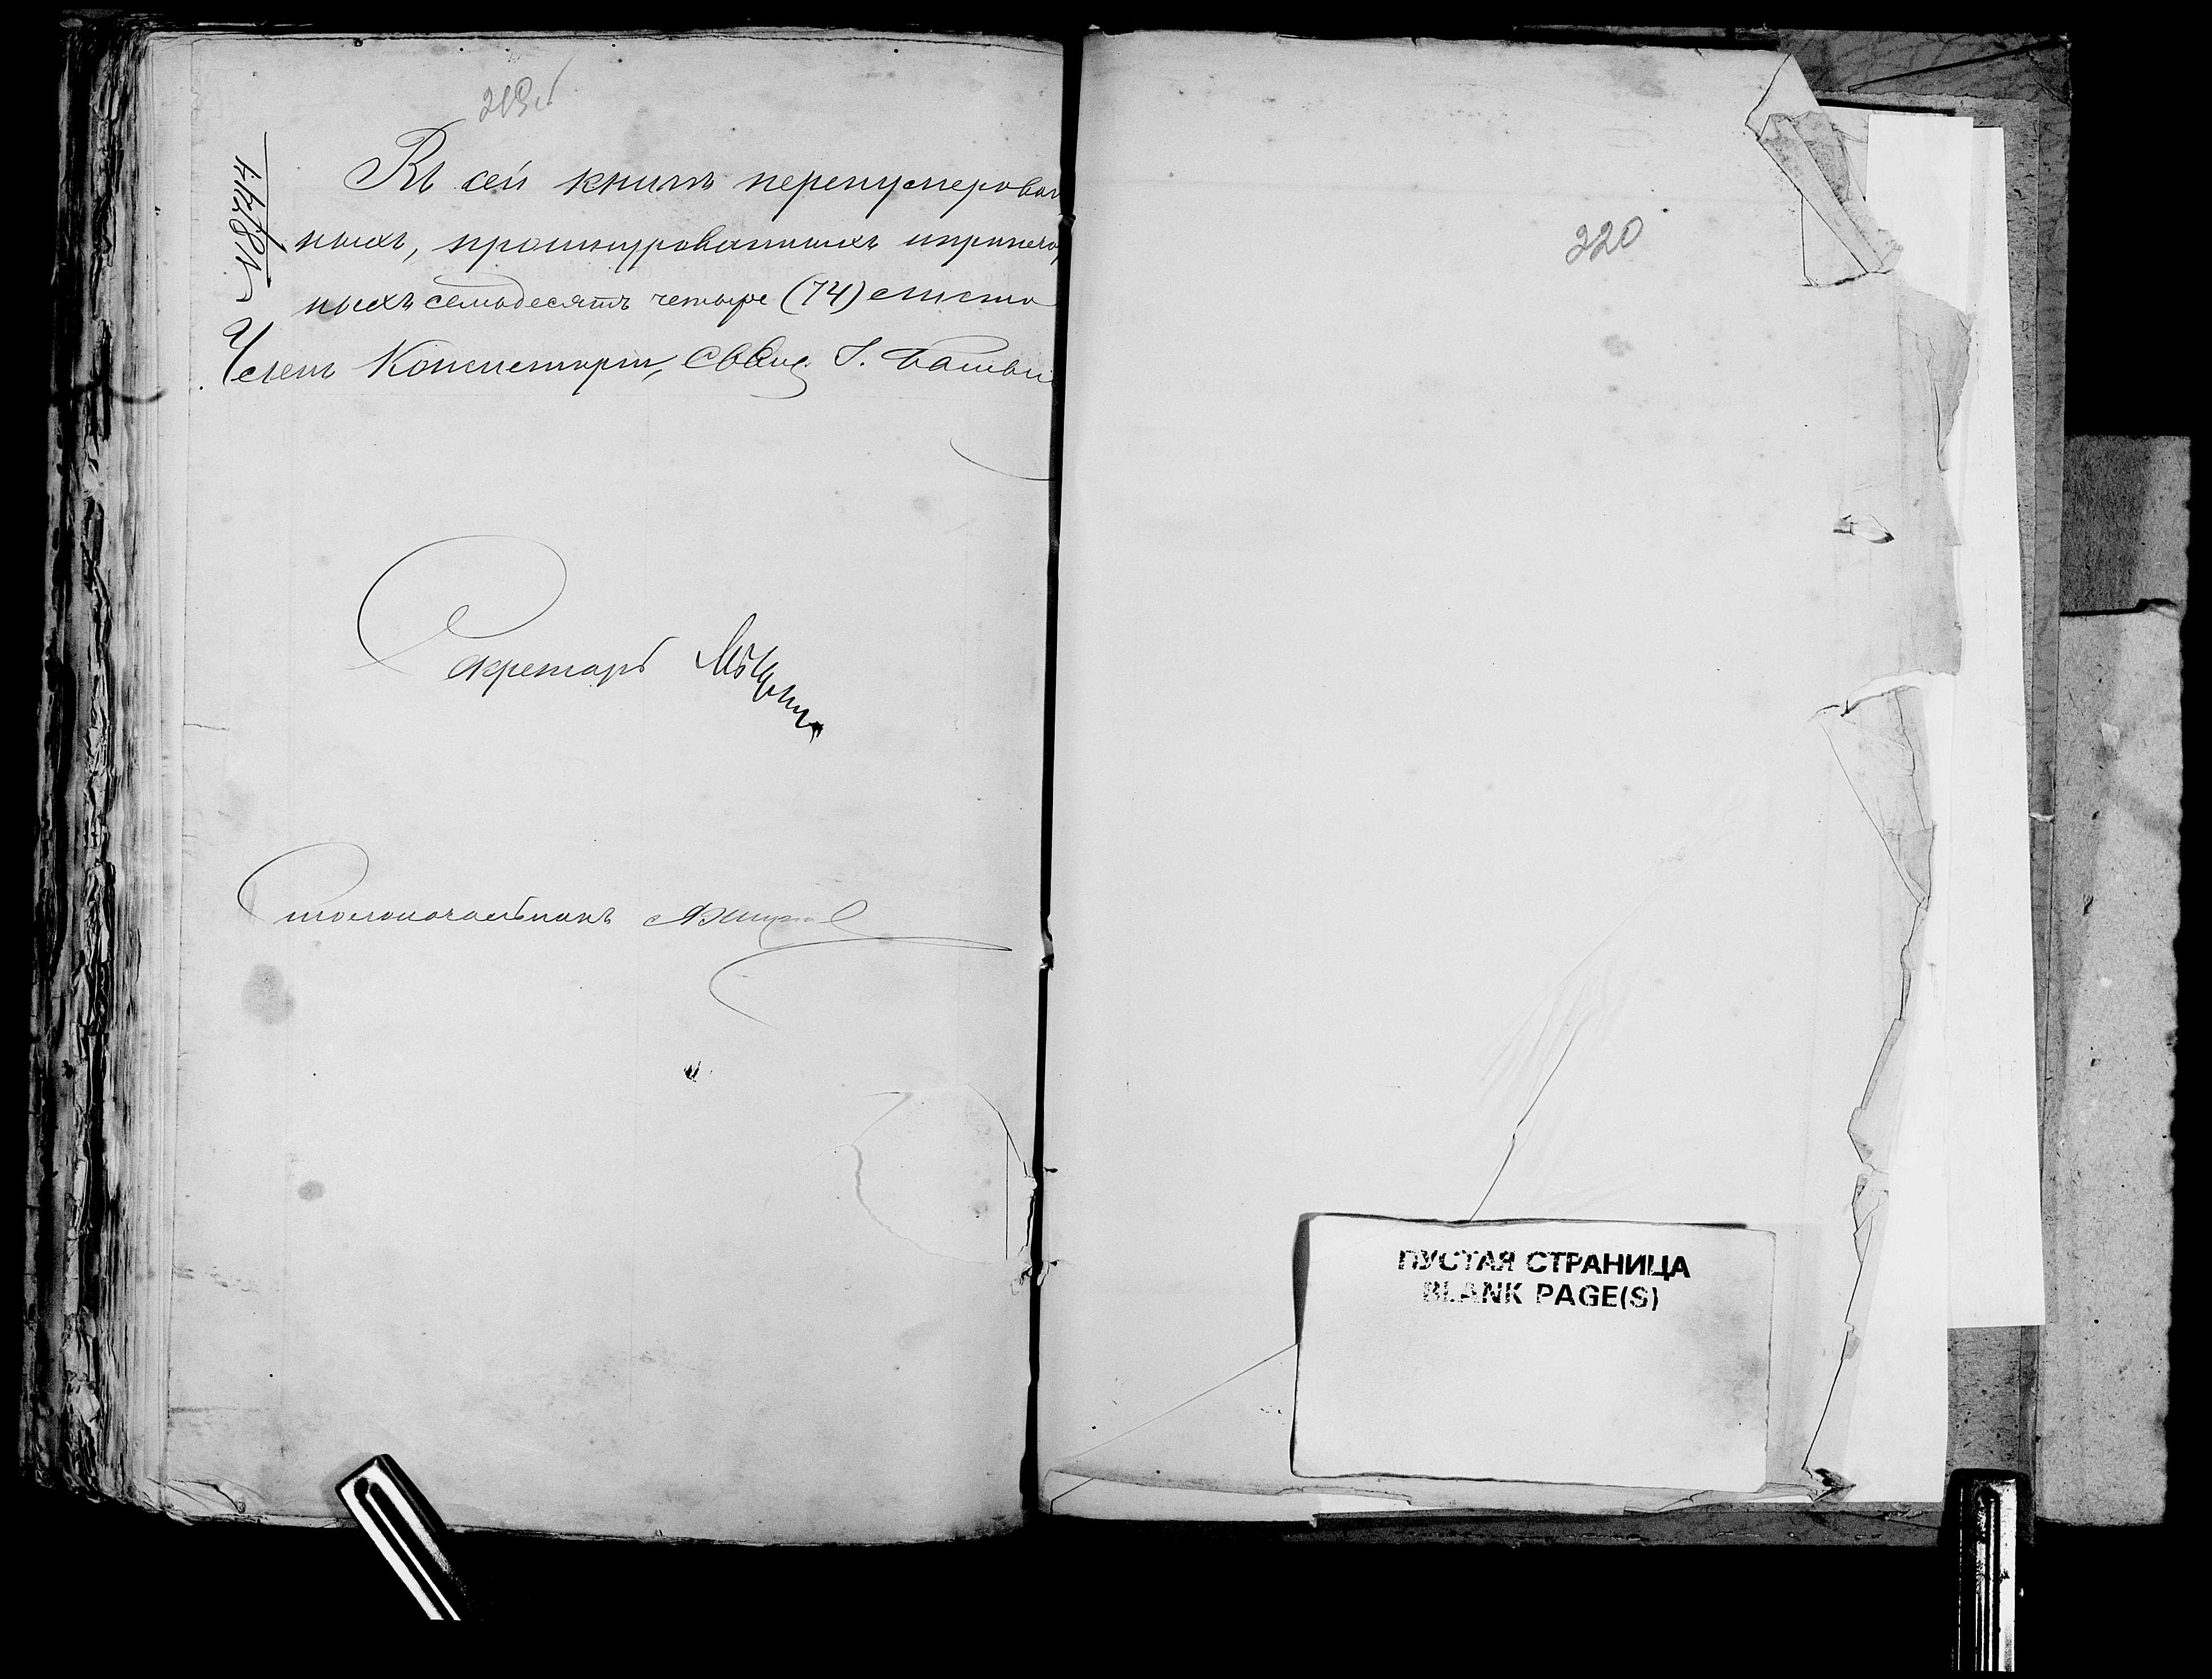 219об
№ 8744
Въ сей книгѣ перенумерован
ныхъ, прошнурованныхъ и припеча
ныхъ семьдесятъ четыре (74) листа
Членъ Консисторіи, Свящ. І.
Секретарь
Столоначальникъ
220
ПУСТАЯ СТРАНИЦА
BLANK PAGE(S)